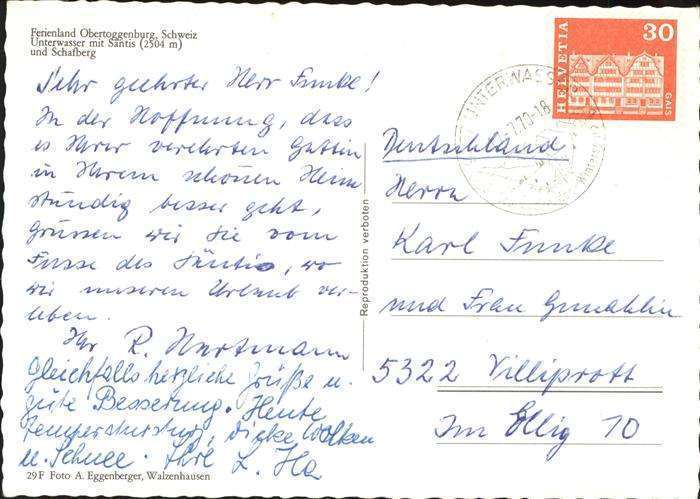 Ferienland Obertoggenburg, Schweiz
Unterwasser mit Säntis (2504 m)
und Schafberg
Sehr geehrter Herr Funke!
In der Hoffnung, dass
es Ihrer verehrten Gattin
in Ihrem schönen Heim
ständig besser geht,
grüssen wir Sie vom
Fusse des Säntis, wo
wir unseren Urlaub ver-
leben.
Ihr R. Hartmann
Gleichfalls herzliche Grüße u.
gute Besserung. Heute
Temperatursturz, dicke Wolken
u. Schnee. Ihre L. Ha
29 F Foto A. Eggenberger, Walzenhausen
Reproduktion verboten
HELVETIA
30
GAIS
UNTERWASSER
70-18
Deutschland
Herrn
Karl Funke
und Frau Gemahlin
5322 Villiprott
Im Ellig 10